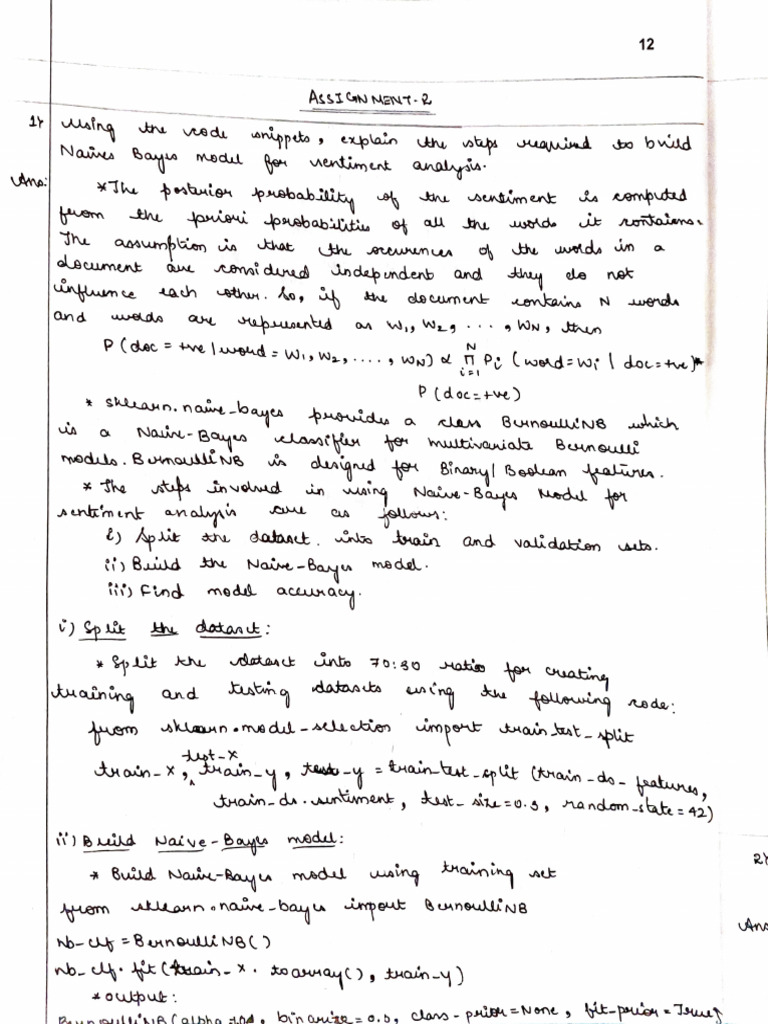 12
ASSIGNMENT-2
1) Using the code snippets, explain the steps required to build
Naives Bayes model for sentiment analysis.
Ans:
*The posterior probability of the sentiment is computed
from the priori probabilities of all the words it contains.
The assumption is that the occurences of the words in a
document are considered independent and they do not
influence each other. So, if the document contains N words
and words are represented as W1, W2, ...., WN, then
P(doc = +ve | word = W1, W2, ...., WN) ∝ N∏i=1 Pi (word = Wi | doc = +ve)*
P(doc=+ve)
* sklearn.naive_bayes provides a class BernoulliNB which
is a Naive-Bayes classifier for multivariate Bernoulli
models. BernoulliNB is designed for Binary/Boolean features.
* The steps involved in using Naive-Bayes Model for
sentiment analysis are as follows:
i) Split the dataset into train and validation sets.
ii) Build the Naive-Bayes model.
iii) Find model accuracy.
i) Split the dataset:
* Split the dataset into 70:30 ratio for creating
training and testing datasets using the following code:
from sklearn.model-selection import train_test_split
train-x, test-x, train-y, test-y = train_test_split (train-ds-features,
train-ds.sentiment, test-size=0.3, random-state=42)
ii) Build Naive-Bayes model:
* Build Naive-Bayes model using training set
from sklearn.naive-bayes import BernoulliNB
nb-clf = BernoulliNB()
nb-clf.fit(train-x.toarray(), train-y)
*output:
BernoulliNB(alpha=1.0, binarize=0.0, class-prior=None, fit-prior=True)
2)
Ans